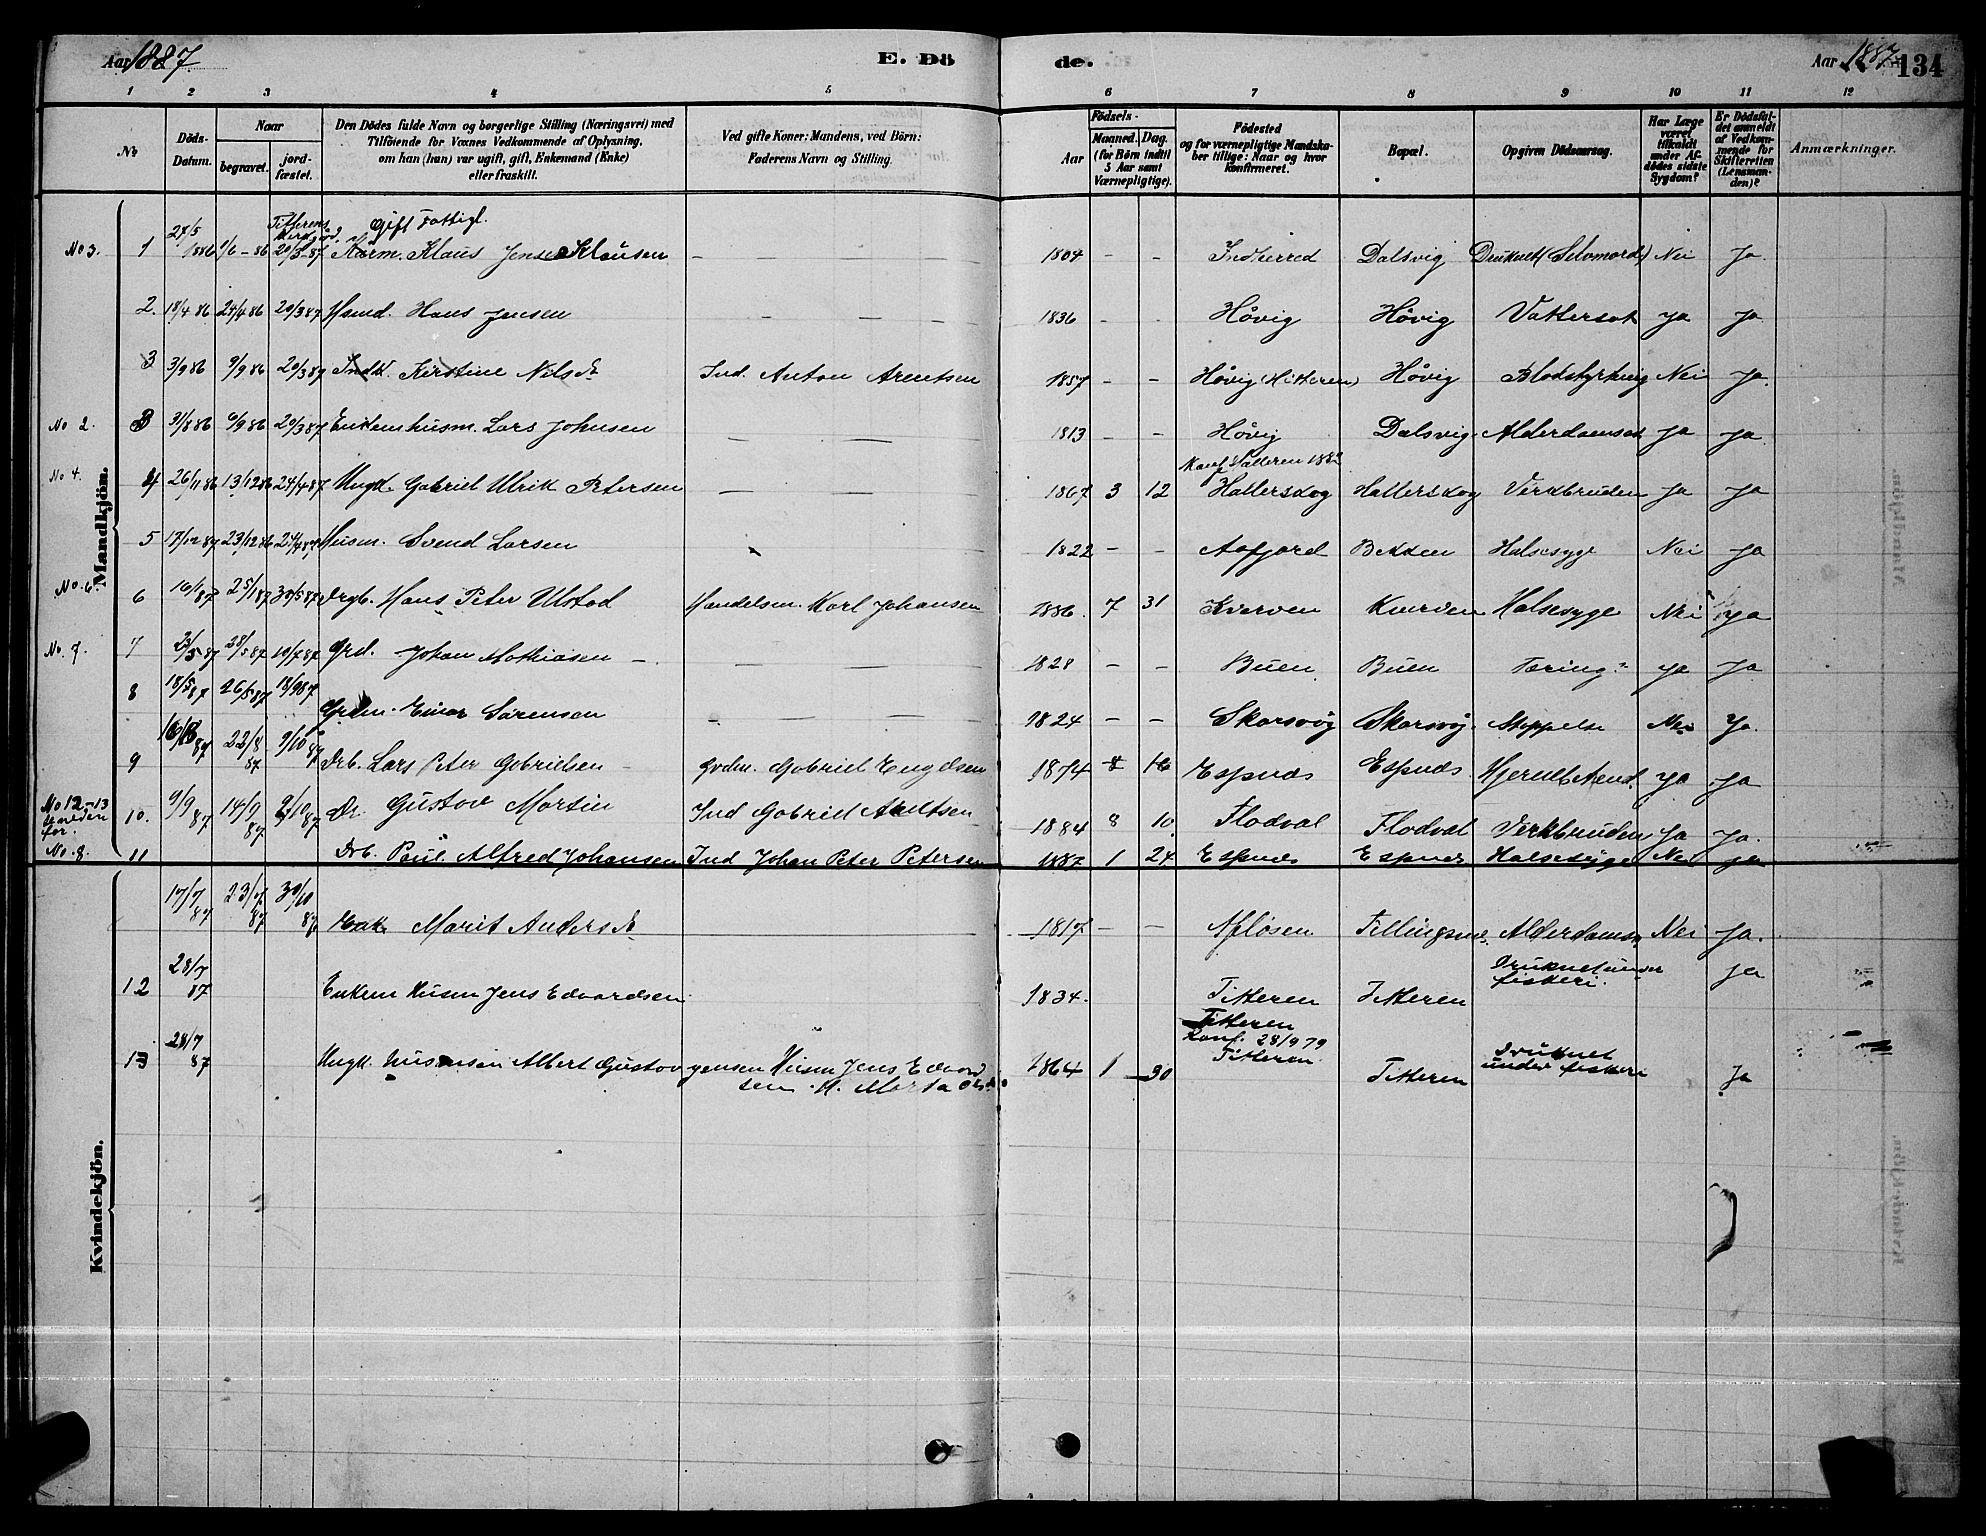 Aar 1887. E. Dö de. Aar 1887. 134
1 2 3 4 5 6 7 8 9 10 11 12
No
Döds-Datum.
Naar
begravet.
jord-fæstet.
Den Dödes fulde Navn og borgerlige Stilling (Næringsvei) med
Tilföiende for Voxnes Vedkommende af Oplysning,
om han (hun) var ugift, gift, Enkemand (Enke)
eller fraskilt.
Ved gifte Koner: Mandens, ved Börn:
Faderens Navn og Stilling.
Födsels-
Aar
Maaned. Dag.
(for Börn indtil
5 Aar samt
Værnepligtige).
Födested
og for værnepligtige Mandska-
ber tillige: Naar og hvor
konfirmeret.
Bopæl.
Opgiven Dödsaarsag.
Har Læge
været
tilkaldt
under Af-
dödes sidste
Sygdom?
Er Dödsfal-
det anmeldt
af Vedkom-
mende for
Skifteretten
(Lensman-
den)?
Anmærkninger.
Mandkjön.
Gift Fattigl.
No 3. 1 1886 1/6-86 20/3-87 Klaus Jensen Klausen – – – 1804 – – Indherred Dalsvig Druknet (Selvmord) Nei Ja
2. 18/4 86 24/4 86 20/3 87 Hans Jensen – – – 1836 – – Hövig Hövig Vattersot Ja Ja
3 3/9 86 9/9 86 20/3 87 Kirstine Nilsd. Ind. Anton Arentsen 1857 – – Hövig (Hitteren) Hövig Blodstyrtning Nei Ja.
No 2. 31/8 86 9/9 86 20/3 87 Enkemhusm. Lars Johnsen – – – 1813 – – Hövig Dalsvig Alderdomsot Ja Ja
No 4. 4 26/11 86 13/12 86 24/4 87 Ungk. Gabriel Ulrik Petersen – – – 1867 3 12 Hallerskog Hallerskog Verkbruden Ja Ja
5 17/12 87 23/12 86 24/4 87 Husm. Svend Larsen 1822 – – Aafjord Bekken Halsesyge Nei Ja
No. 6. 6 25/1 87 30/5 87 Hans Peter Ulstad Handelsm. Karl Johansen 1886. 7 31 Kverven Kverven Halsesyge Nei Ja
No. 7. 7 23/5 87 28/5 87 10/7 87 Grd. Johan Mathiasen – – – 1828 – – Buen Buen Tæring Ja Ja
8 18/5 87 26/5 87 18/9 87 Einar Sörensen – – – 1824 – – Skarsvög Skarsvög. Nei Ja.
9 22/8 87 9/10 87 Drb. Lars Peter Gabrielsen – Gabriel Engelsen 1874 8 16 Espnæs Espnæs Ja Ja
No 12-13
for.
10. 9/9 87 14/9 87 9/10 87 Dr. Gustav Martin Ind Gabriel Arntsen 1884 8 10 Flodval Flodval Verkbruden Ja Ja.
No. 8. 11 Drb. Paul Alfred Johansen Ind Johan Peter Petersen 1887 1 24 Espnes Espnes Halsesyge Nei Ja
Kvindekjön.
17/7 87 23/7 87 30/10 87 Marit Andersd. 1817 – – Alderdoms Nei Ja.
12 28/7 87 Enkem Husm Jens Edvardsen 1834. Titteren Titteren Druknet under fiskeri. Ja
13 28/7 87 Ungk. Albert Gustav Jensen Husm Jens Edvardsen 1864 1 30 Titteren Konf. 28/9 79 Titteren. Titteren Druknet under fiskeri Ja